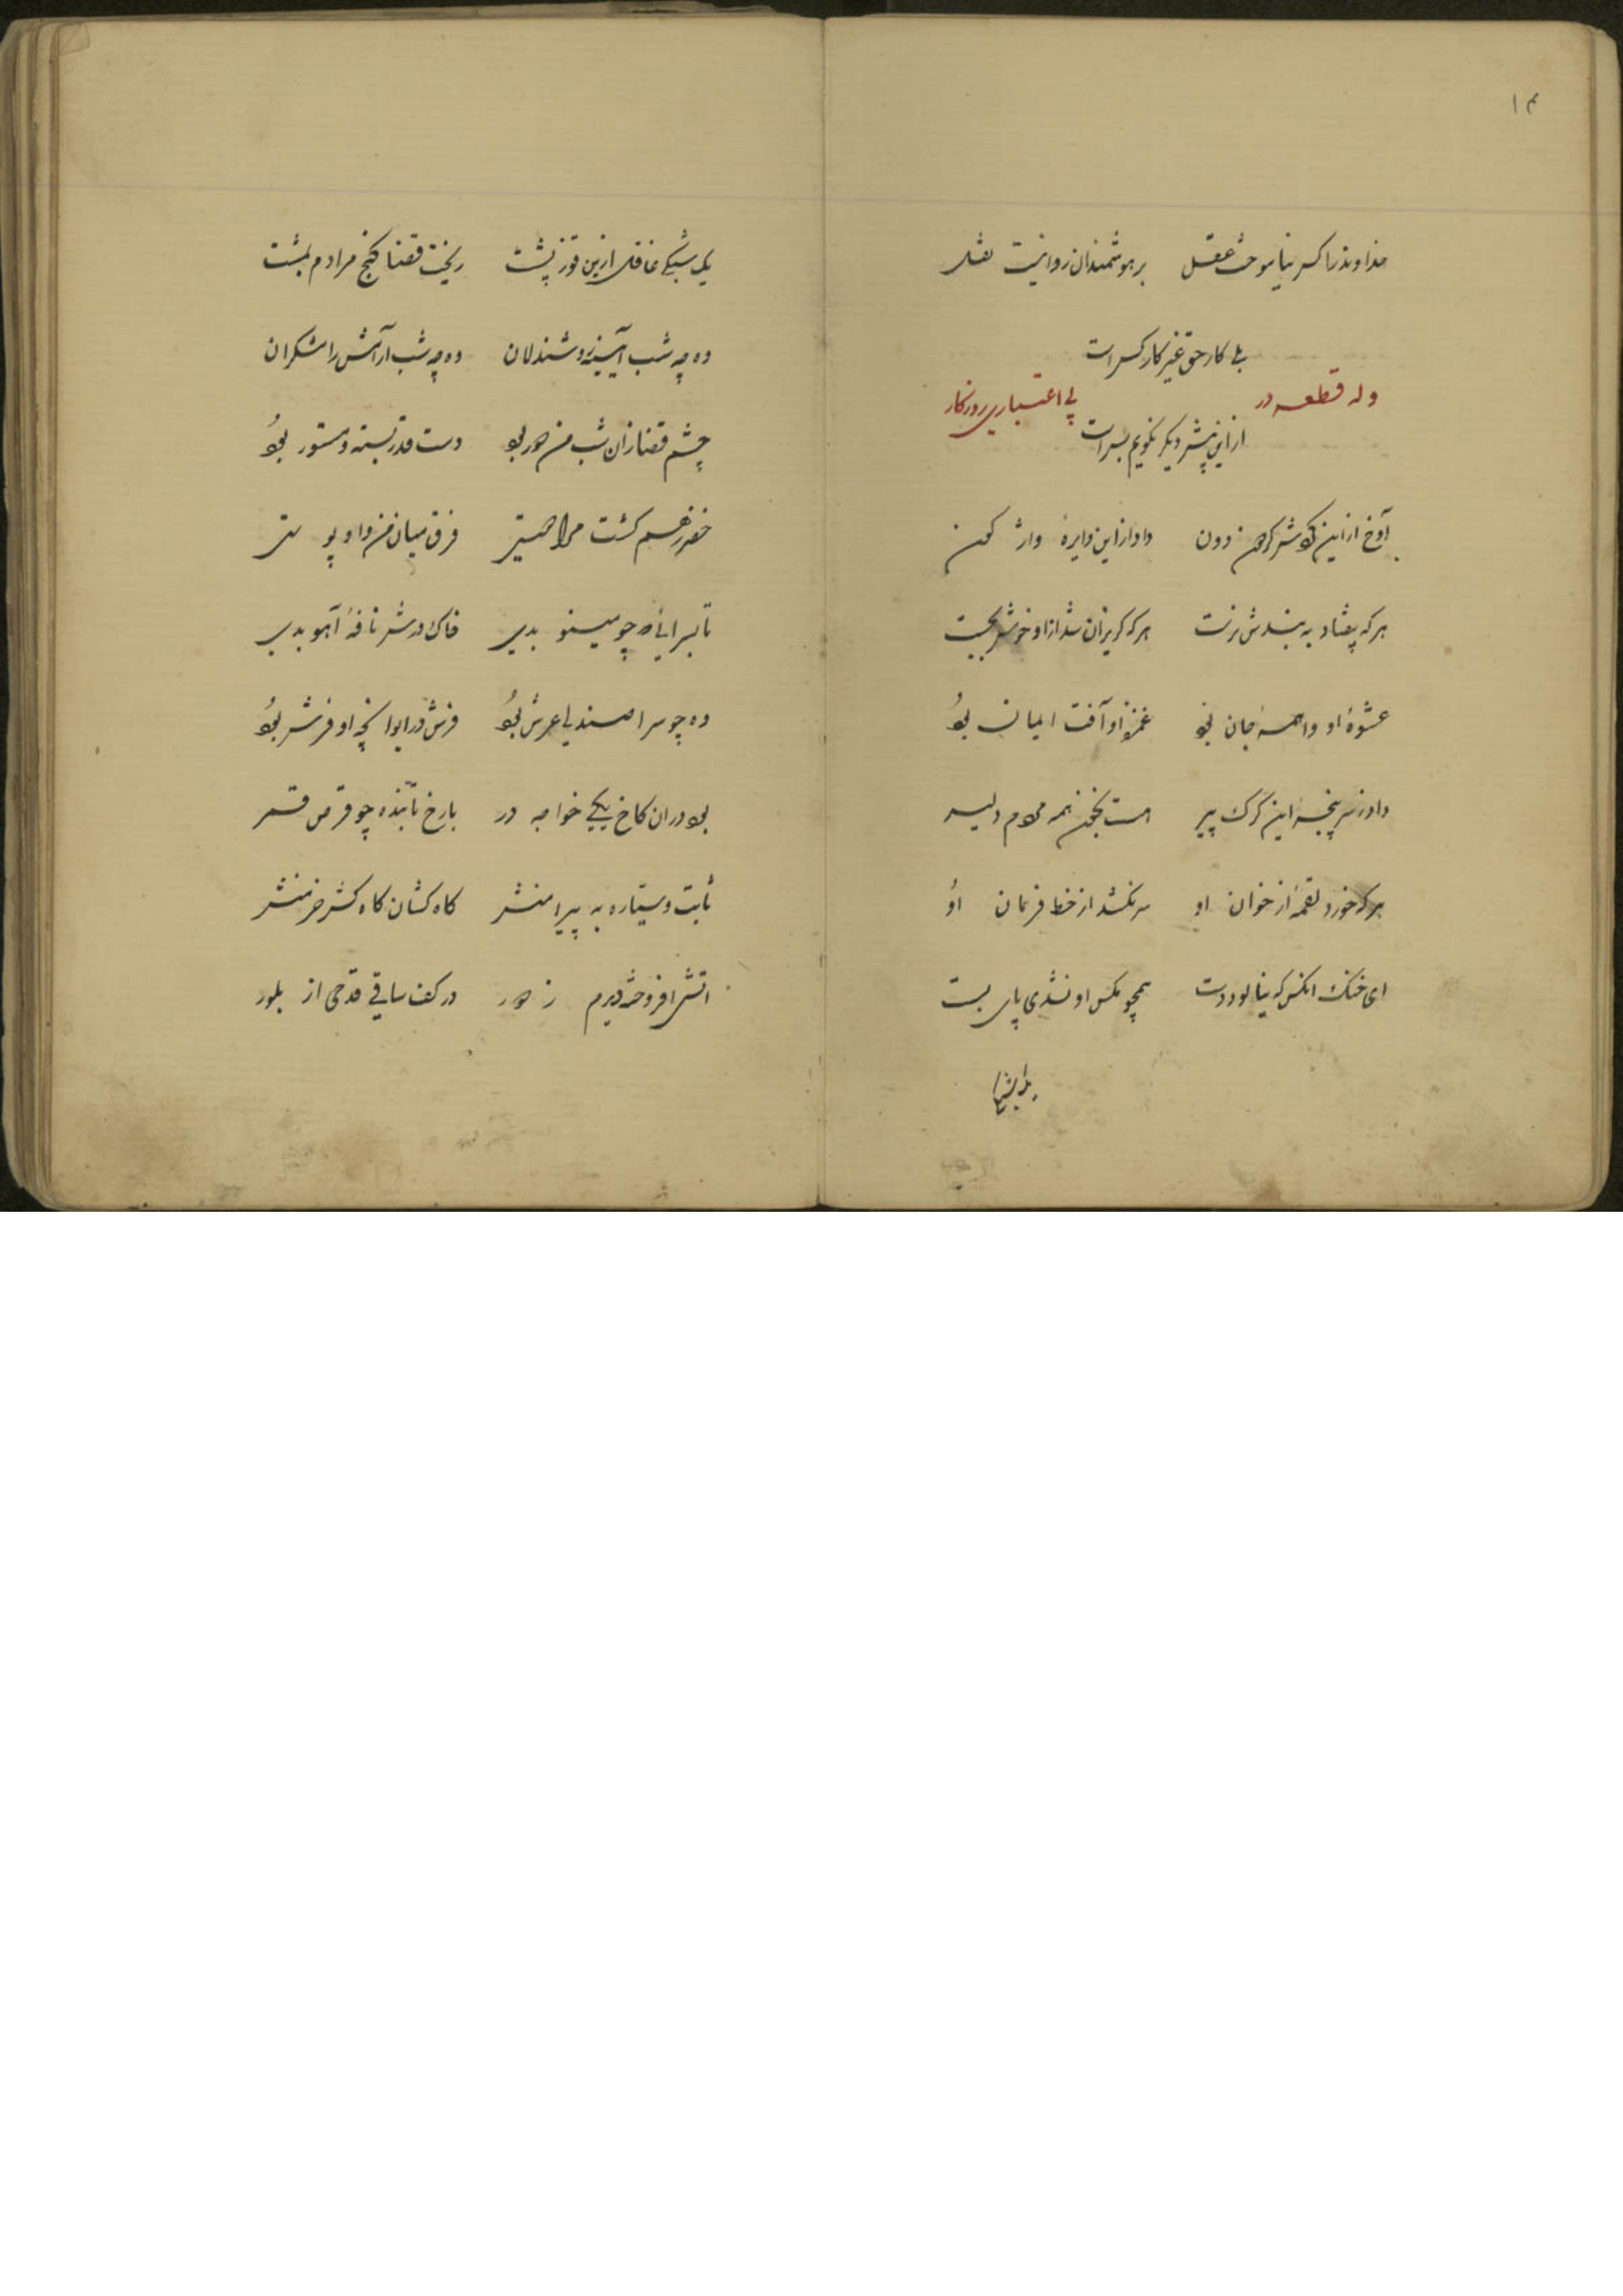 ۱۴
خداوند را کس نیاموخت عقل بر هوشمندان روا نیست نقل
بلی کار حق غیر کار کس است
وله قطعه در بی اعتباری روزگار
از این پیش دیگر نگویم بس است
آوخ ازین کردش گردون دون داد از این دایره واژگون
هر که بیفتاد به بندش نرست هر که گریزان شد ازاو خوش بجست
عشوه او واهمه جان بود غمزه او آفت ایمان بود
داد ز سر پنجه این گرگ پیر مست بخون همه مردم دلیر
هر که خورد لقمه از خوان او سر نکشد از خط فرمان او
ای خنک انکس که نیالود دست همچو مکس او نشدی پای بست
یک شبکی غافل ازین قوز پشت ریخت قضا گنج مرادم بمشت
وه چه شب آیینه روشندلان وه چه شب آرامش رامشگران
چشم قضا زان شب من دور بود دست قدر بسته و مستور بود
خضر رهم گشت مرا فرق میان من و او پوستی
تا بسرائی که چو مینو بدی خاک درش نافه آهو بدی
وه چو سرا صندلی عرش بود فرش در ایوانچه او فرش بود
بود دران کاخ یکی خواجه در با رخ تابنده چو قرص قمر
ثابت و سیاره به پیرامنش کاه کشان کاه کش خرمنش
اتش افروخته دیدم ز دور در کف ساقی قدحی از بلور